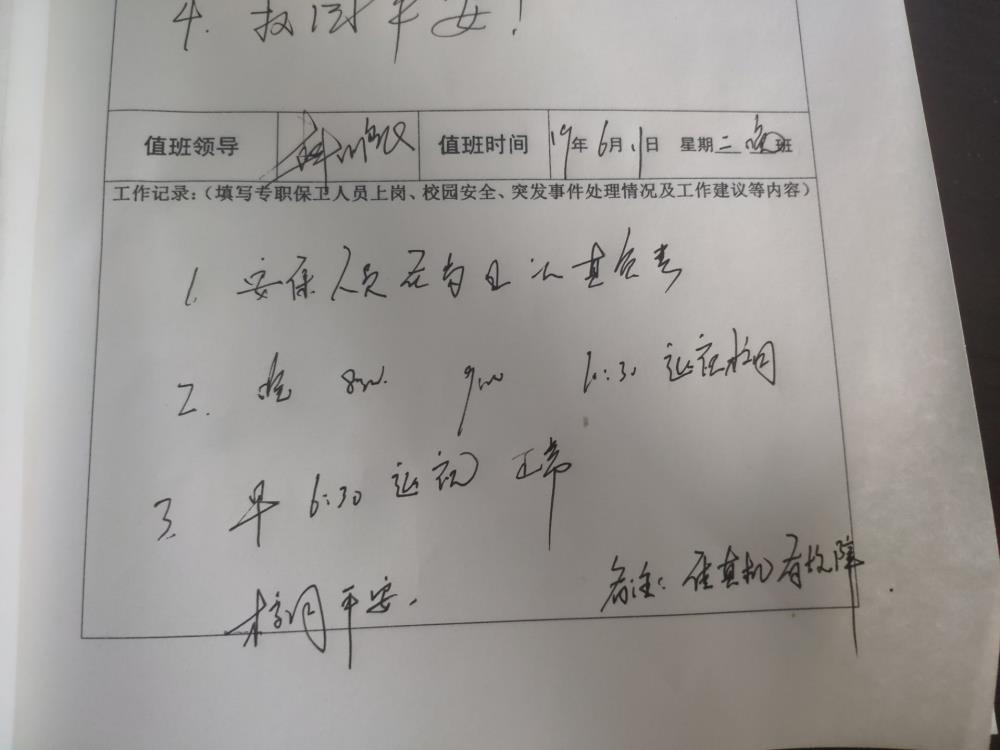 4. 校园平安!
值班领导 值班时间 19年6月11日 星期二 晚班
工作记录:(填写专职保卫人员上岗、校园安全、突发事件处理情况及工作建议等内容)
1. 安保人员在岗且认真负责
2. 晚 8:00 9:00 10:30 巡视校园
3. 早 6:30 巡视 正常
校园平安.
备注: 传真机有故障